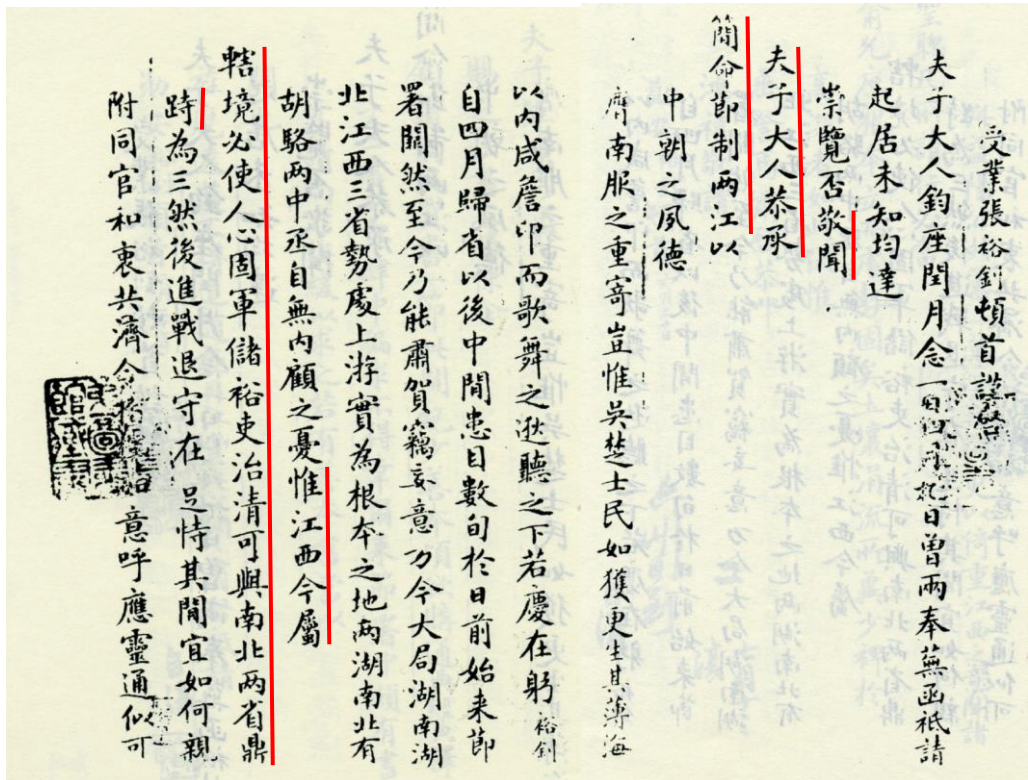 受業張裕釗頓首謹啓
夫子大人鈞座閏月念一日四月初日曾兩奉蕪函祗請
起居未知均達
崇覽否敬聞
夫子大人恭承
簡命節制兩江以
中朝之夙德
膺南服之重寄豈惟吳楚士民如獲更生其薄海
以内咸詹卬而歌舞之逖聽之下若慶在躬裕釗
自四月歸省以後中間患目數旬於日前始来節
署闃然至今乃能肅賀竊妄意方今大局湖南湖
北江西三省勢處上游實為根本之地两湖南北有
胡駱两中丞自無内顧之憂惟江西今屬
轄境必使人心固軍儲裕吏治清可與南北两省鼎
跱為三然後進戰退守在足恃其間宜如何親
附同官和衷共濟令意呼應靈通似可